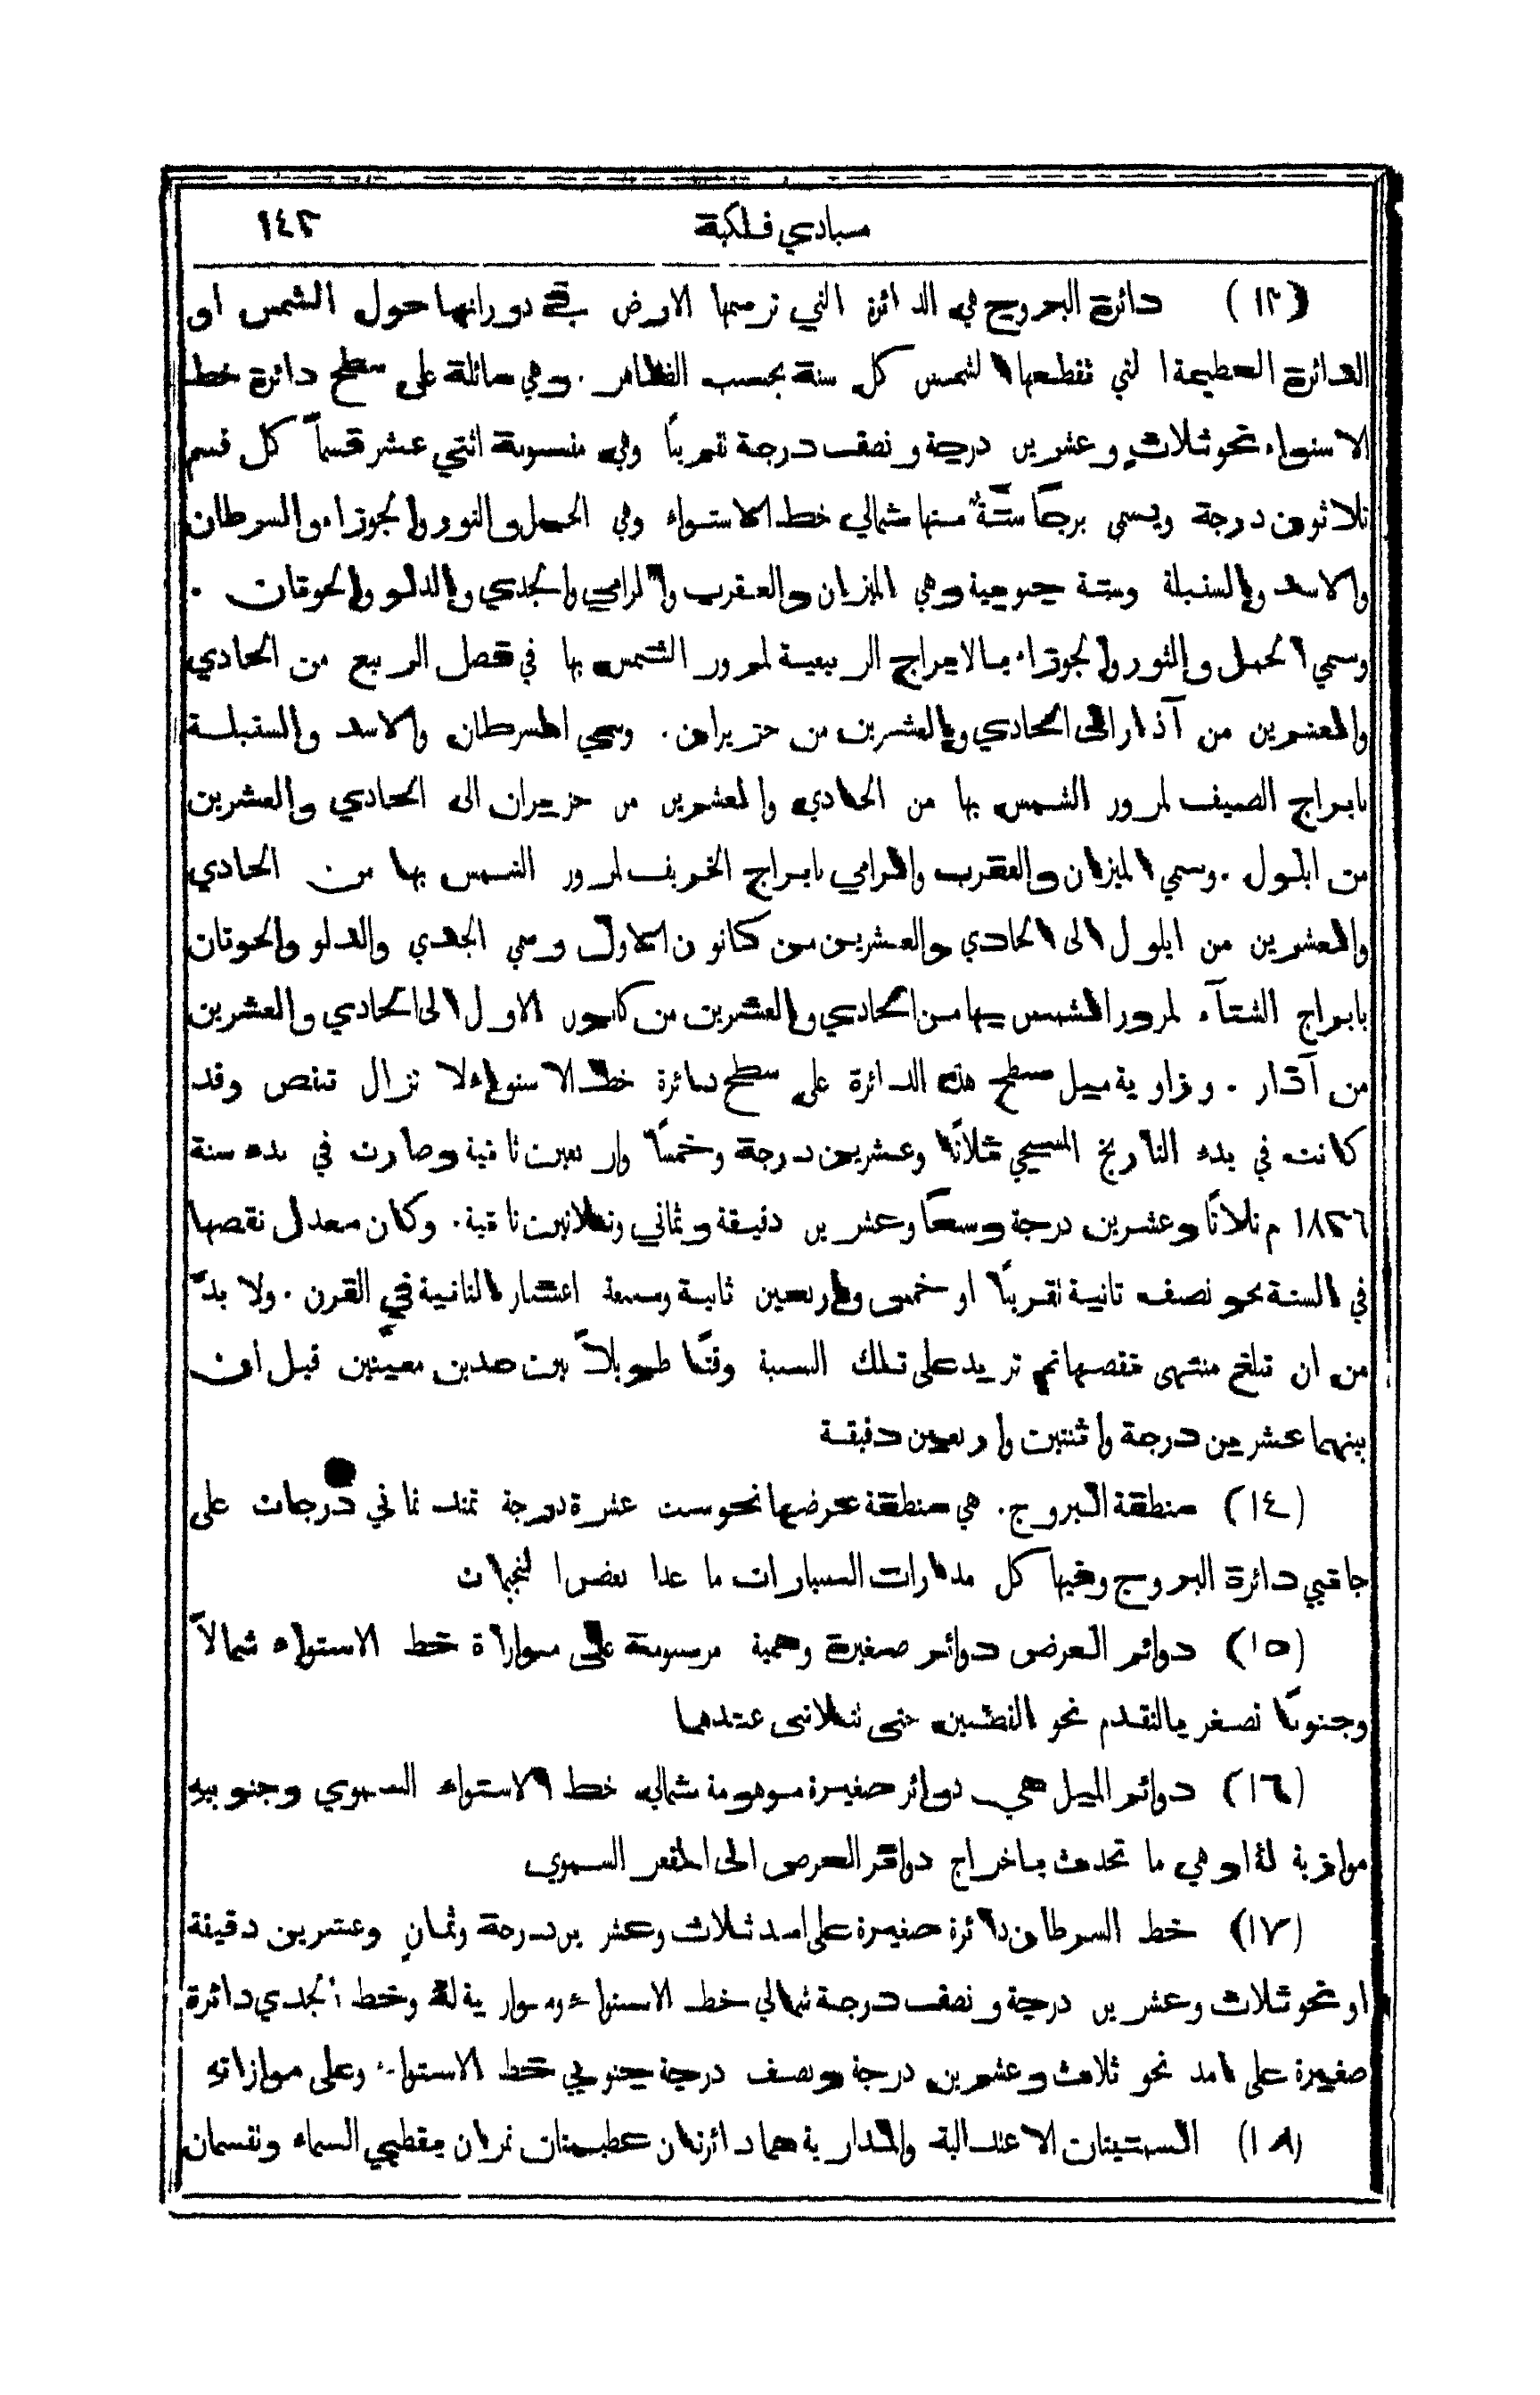 مبادي فلكية ١٤٣
(١٣) دائرة البروج هي الدائرة التي ترسمها الارض في دورانها حول الشمس او
الدائرة العظيمة التي تقطعها الشمس كل سنة بحسب الظاهر . وهي مائلة على سطح دائرة خط
الاستواء نحو ثلاث وعشرين درجة ونصف درجة تقريبًا وهي مقسومة اثني عشر قسماً كل قسم
ثلاثون درجة ويسمى برجًا ستّةٌ منها شمالي خط الاستواء وهي الحمل والثور والجوزاء والسرطان
والاسد والسنبلة وستة جنوبية وهي الميزان والعقرب والرامي والجدي والدلو والحوتان .
وسمي الحمل والثور والجوزاء بالابراج الربيعية لمرور الشمس بها في فصل الربيع من الحادي
والعشرين من آذار الى الحادي والعشرين من حزيران . وسمي السرطان والاسد والسنبلة
بابراج الصيف لمرور الشمس بها من الحادي والعشرين من حزيران الى الحادي والعشرين
من ايلول . وسمي الميزان والعقرب والرامي بابراج الخريف لمرور الشمس بها من الحادي
والعشرين من ايلول الى الحادي والعشرين من كانون الاول وسمي الجدي والدلو والحوتان
بابراج الشتآء لمرور الشمس بها من الحادي والعشرين من كانون الاول الى الحادي والعشرين
من آذار . وزاوية ميل سطح هذه الدائرة على سطح دائرة خط الاستواء لا تزال تنقص وقد
كانت في بدء التاريخ المسيحي ثلاثًا وعشرين درجة وخمسًا واربعين ثانية وصارت في بدء سنة
١٨٣٦ م ثلاثًا وعشرين درجة وسبعًا وعشرين دقيقة وثماني وثلاثين ثانية . وكان معدل نقصها
في السنة نحو نصف ثانية تقريبًا او خمس واربعين ثانية وسبعة اعشار الثانية في القرن . ولا بدّ
من ان تبلغ منتهى نقصها ثم تزيد على تلك النسبة وقتًا طويلاً بين حدين معيّنين قبل ان
بينهما عشرين درجة واثنتين واربعين دقيقة
(١٤) منطقة البروج . هي منطقة عرضها نحو ست عشرة درجة تمتد ثماني درجات على
جانبي دائرة البروج وفيها كل مدارات السيارات ما عدا بعض النجيمات
(١٥) دوائر العرض دوائر صغيرة وهمية مرسومة على موازاة خط الاستواء شمالاً
وجنوبًا تصغر بالتقدم نحو القطبين حتى تتلاشى عندهما
(١٦) دوائر الميل هي دوائر صغيرة موهومة شمالي خط الاستواء السموي وجنوبيه
موازية لهُ او هي ما تحدث باخراج دوائر العرض الى المقعر السموي
(١٧) خط السرطان دائرة صغيرة على امد ثلاث وعشرين درجة وثمانٍ وعشرين دقيقة
او نحو ثلاث وعشرين درجة ونصف درجة شمالي خط الاستواء وموازية لهُ وخط الجدي دائرة
صغيرة على امد نحو ثلاث وعشرين درجة ونصف درجة جنوبي خط الاستواء وعلى موازاتهِ
(١٨) السمتيتان الاعتدالية والمدارية هما دائرتان عظيمتان تمران بقطبي السماء وتقسمان